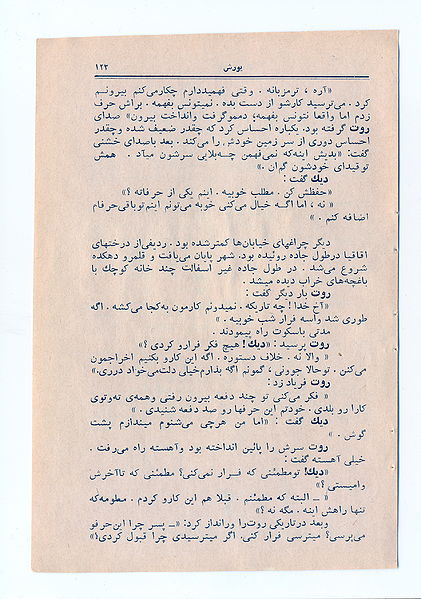 ۱۲۲ یورش
«آره ، ترمزبانه . وقتی فهمیددارم چکارمی‌کنم بیرونم
کرد . می‌ترسید کارشو از دست بده . نمیتونس بفهمه . براش حرف
زدم اما واقعا نتونس بفهمه، دمموگرفت وانداخت بیرون» صدای
روت گرفته بود. یکباره احساس کرد که چقدر ضعیف شده وچقدر
احساس دوری از سر زمین خودش را می‌کند . بعد باصدای خشنی
گفت: «بدیش اینه‌که نمی‌فهمن چه‌بلایی سرشون میاد . همش
توقیدای خودشون گیران .»
دیك گفت :
«حفظش کن . مطلب خوبیه . اینم یکی از حرفاته ؟»
« نه ، اما اگه خیال می‌کنی خوبه می‌تونم اینم‌توباقی‌حرفام
اضافه کنم . »
دیگر چراغهای خیابان‌ها کمترشده بود . ردیفی‌از درختهای
اقاقیا درطول جاده روئیده بود. شهر پایان می‌یافت و قلمرو دهکده
شروع می‌شد . در طول جاده غیر آسفالت چند خانه کوچك با
باغچه‌های خراب دیده میشد .
روت بار دیگر گفت :
«آخ خدا ! چه تاریکه . نمیدونم کارمون به‌کجا می‌کشه . اگه
طوری شد واسه فرار شب خوبیه . »
مدتی باسکوت راه پیمودند .
روت پرسید : «دیك! هیچ فکر فرارو کردی ؟»
« والا نه . خلاف دستوره . اگه این کارو بکنیم اخراجمون
می‌کنن . توحالا جوونی ، گمونم اگه بذارم‌خیلی دلت‌می‌خواد درری.»
روت فریاد زد:
« فکر می‌کنی تو چند دفعه بیرون رفتی وهمه‌ی ته‌وتوی
کارا رو بلدی . خودتم این حرفها رو صد دفعه شنیدی . »
دیك گفت : «اما من هرچی می‌شنوم میندازم پشت
گوش . »
روت سرش را پائین انداخته بود وآهسته راه می‌رفت .
خیلی آهسته گفت :
«دیك! تومطمئنی که فرار نمی‌کنی؟ مطمئنی که تاآخرش
وامیستی ؟»
« ــ البته که مطمئنم . قبلا هم این کارو کردم . معلومه‌که
تنها راهش اینه . مگه نه ؟»
وبعد درتاریکی روت‌را ورانداز کرد: «ــ پسر چرا این‌حرفو
می‌پرسی؟ میترسی فرار کنی. اگر میترسیدی چرا قبول کردی؟»